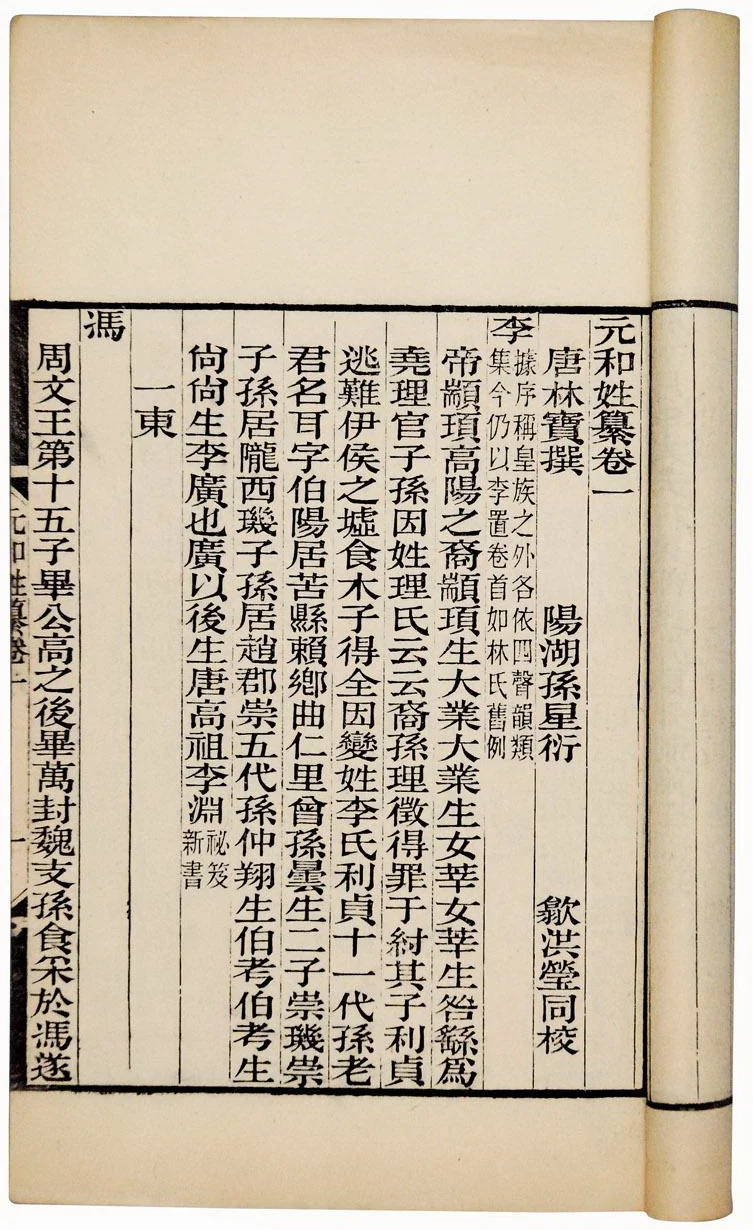 元和姓纂卷一
唐林寶撰　陽湖孫星衍　歙洪瑩同校
李
據序稱皇族之外各依四聲韻類
集今仍以李置卷首如林氏舊例
帝顓頊高陽之裔顓頊生大業大業生女莘女莘生咎繇為
堯理官子孫因姓理氏云云裔孫理徵得罪于紂其子利貞
逃難伊侯之墟食木子得全因變姓李氏利貞十一代孫老
君名耳字伯陽居苦縣賴鄉曲仁里曾孫曇生二子崇璣崇
子孫居隴西璣子孫居趙郡崇五代孫仲翔生伯考伯考生
尙尙生李廣也廣以後生唐高祖李淵
祕笈
新書
一東
馮
周文王第十五子畢公高之後畢萬封魏支孫食采於馮遂
元和姓纂卷一
一